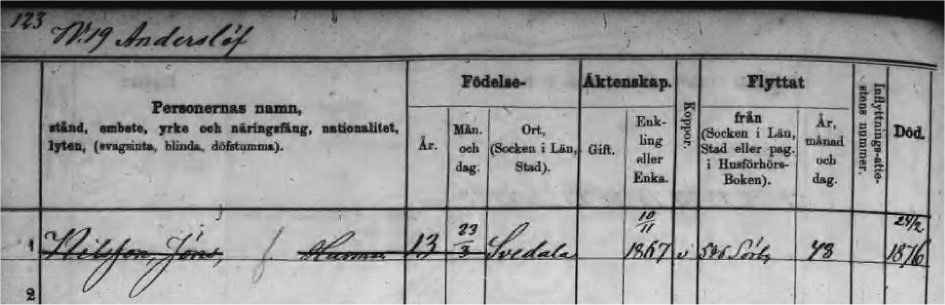 123
No 19 Anderslöf
Personernas namn,
stånd, embete, yrke och näringsfång, nationalitet,
lyten, (svagsinta, blinda, döfstumma).
Födelse-
År.
Mån.
och
dag.
Ort,
(Socken i Län,
Stad).
Äktenskap.
Gift.
Enk-
ling
eller
Enka.
Koppor.
Flyttat
från
(Socken i Län,
Stad eller pag.
i Husförhörs-
Boken).
År,
månad
och
dag.
Inflyttnings-atte-
stens nummer.
Död.
23
10
11
24/2
1 Nilsson, Jöns, f. Husman 13 3 Svedala 1867 v 43 1876
2